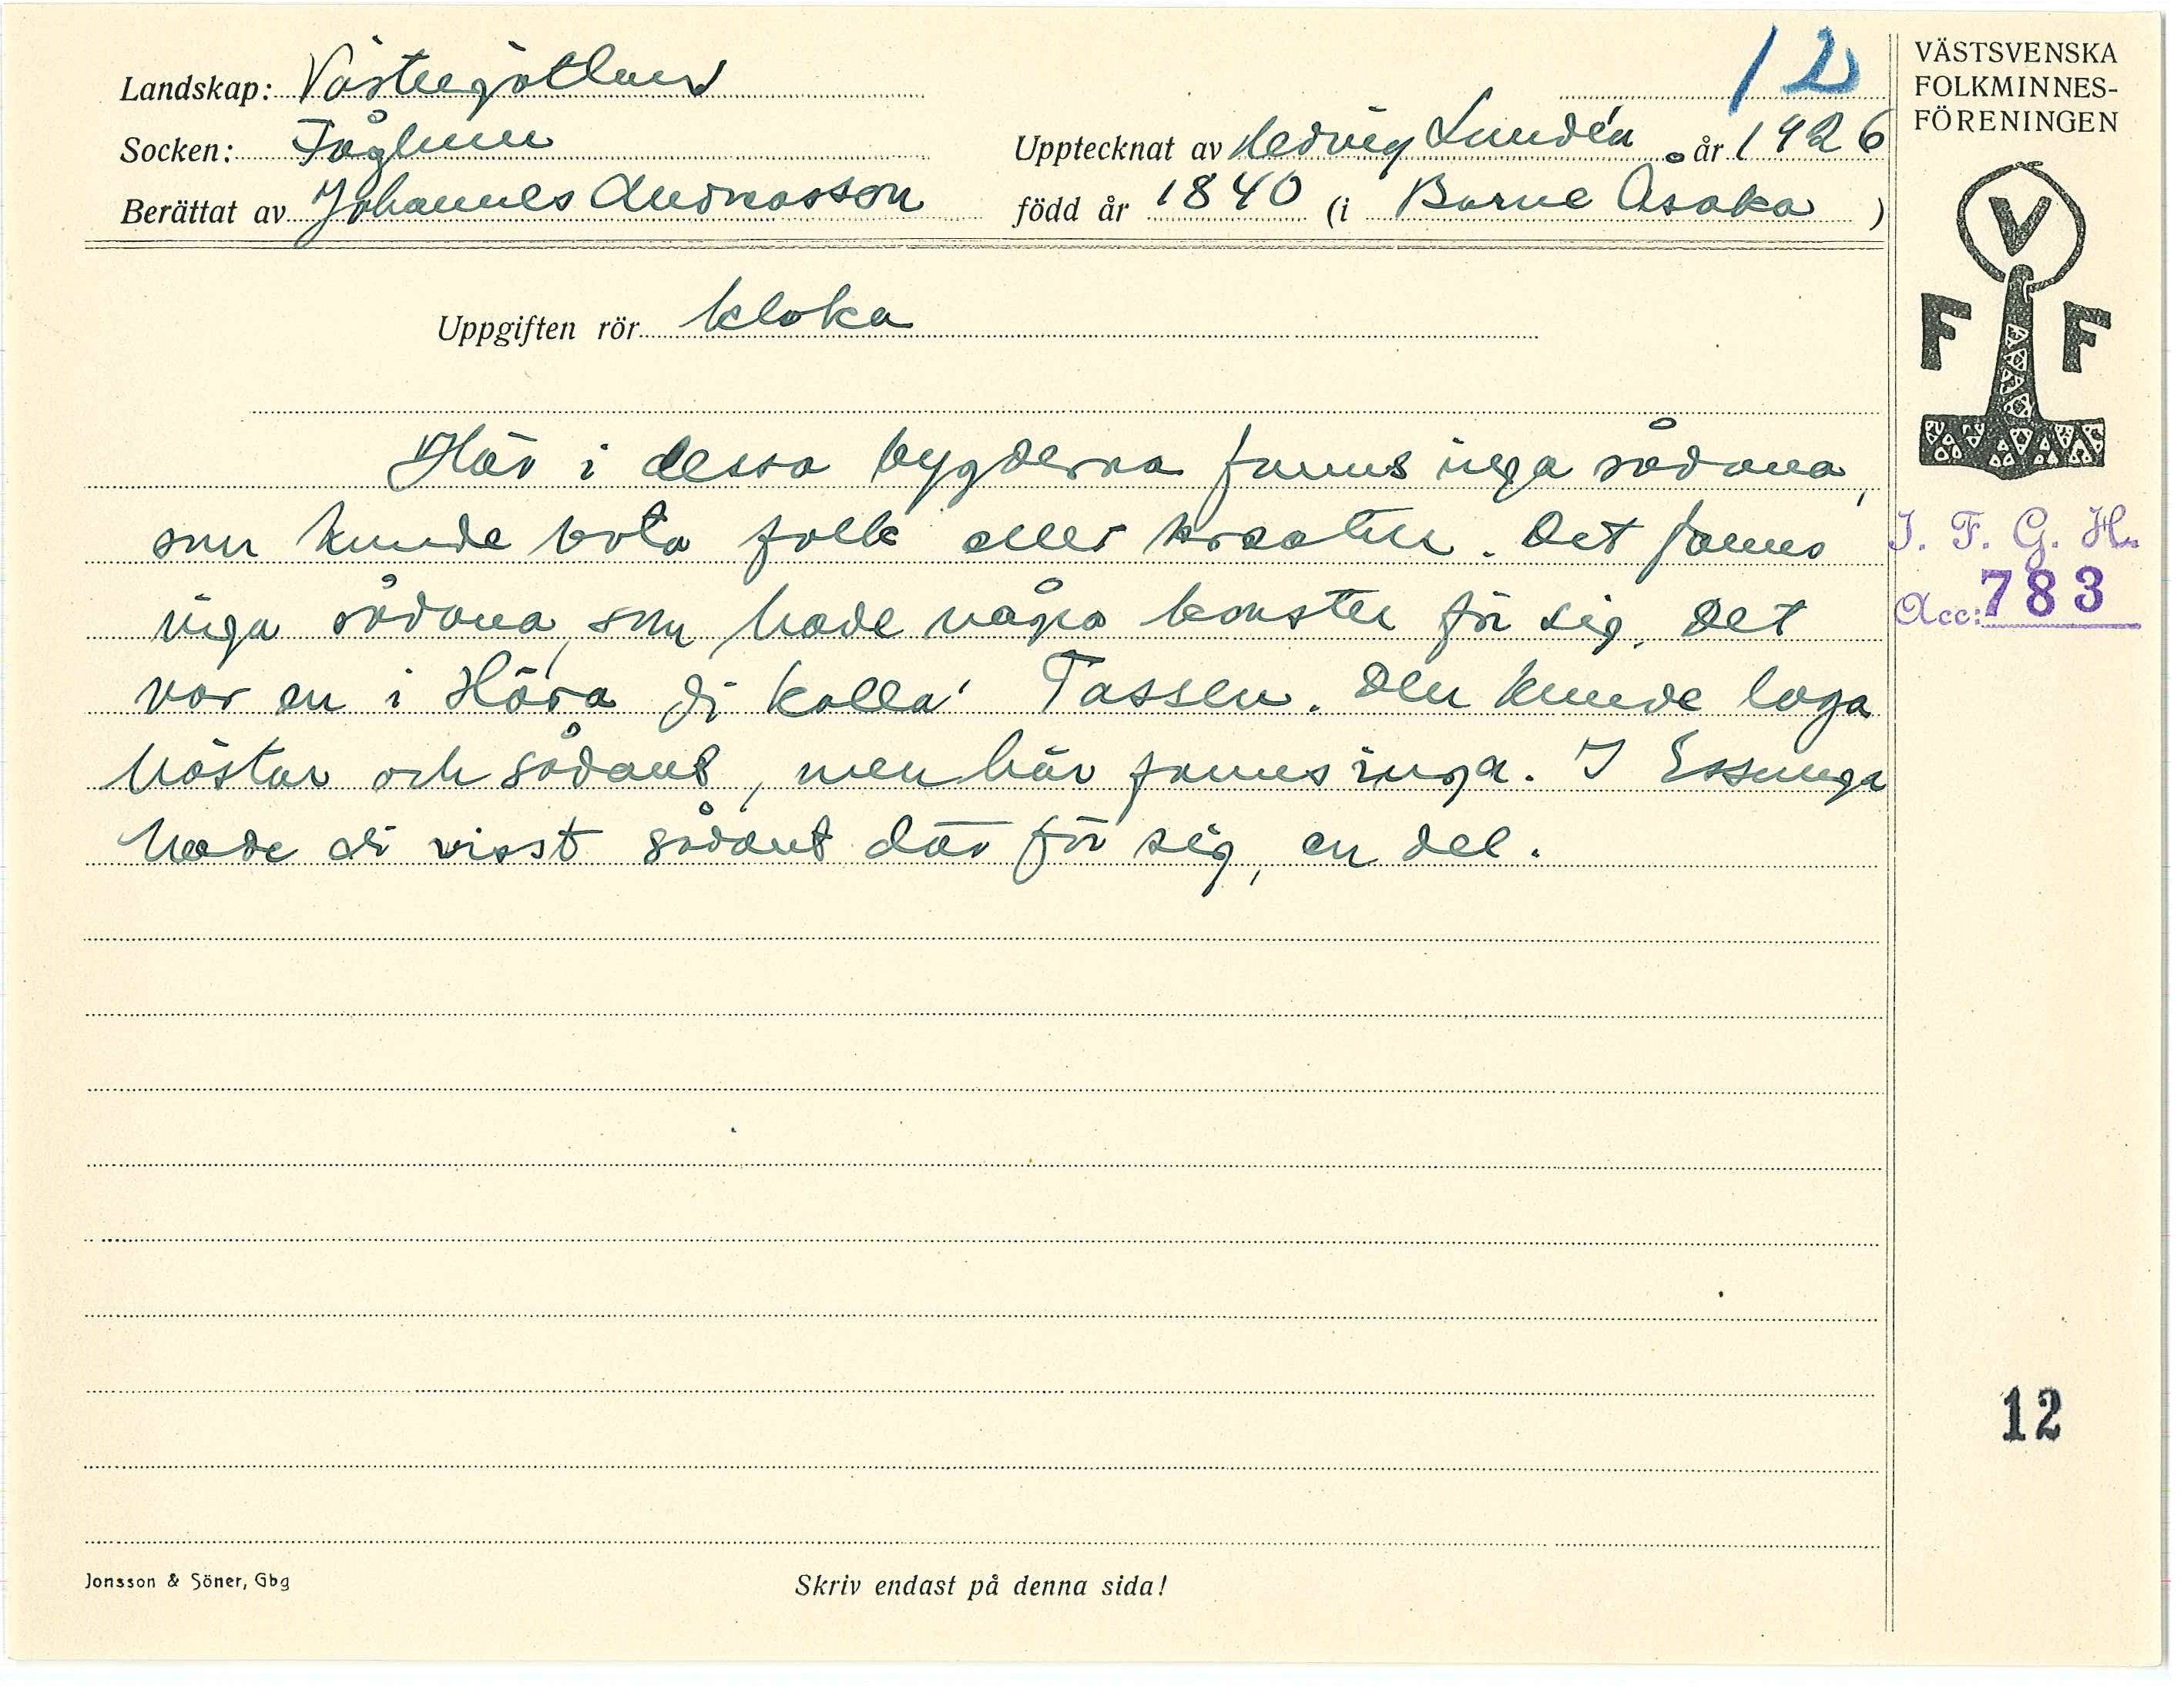 12
VÄSTSVENSKA
FOLKMINNES-
FÖRENINGEN
Landskap: Västergötland
Socken: Fåglum
Upptecknat av Hedvig Lundén år 1926
Berättat av Johannes Andreasson född år 1840 (i Barne Åsaka )
V
F F
Uppgiften rör kloka
Här i dessa bygderna fanns inga sådana,
som kunde bota folk eller kreatur. Det fanns
inga sådana, som hade några konster för sig. Det
var en i Höra di kalla' Tassen. Den kunde laga
hästar och sådant, men här fanns inga. I Essunga
hade di visst sådant där för sig, en del.
I. F. G. H.
Acc: 783
12
Jonsson & Söner, Gbg
Skriv endast på denna sida!